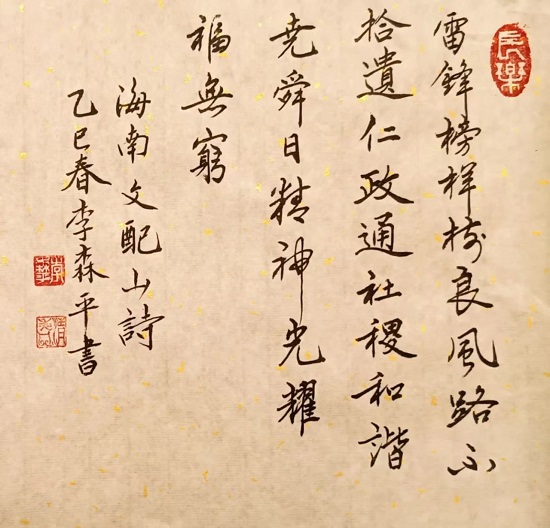 民樂
雷鋒榜样树良風路不
拾遺仁政通社稷和諧
尭舜日精神光耀
福無窮
海南文配山詩
乙巳春李森平書